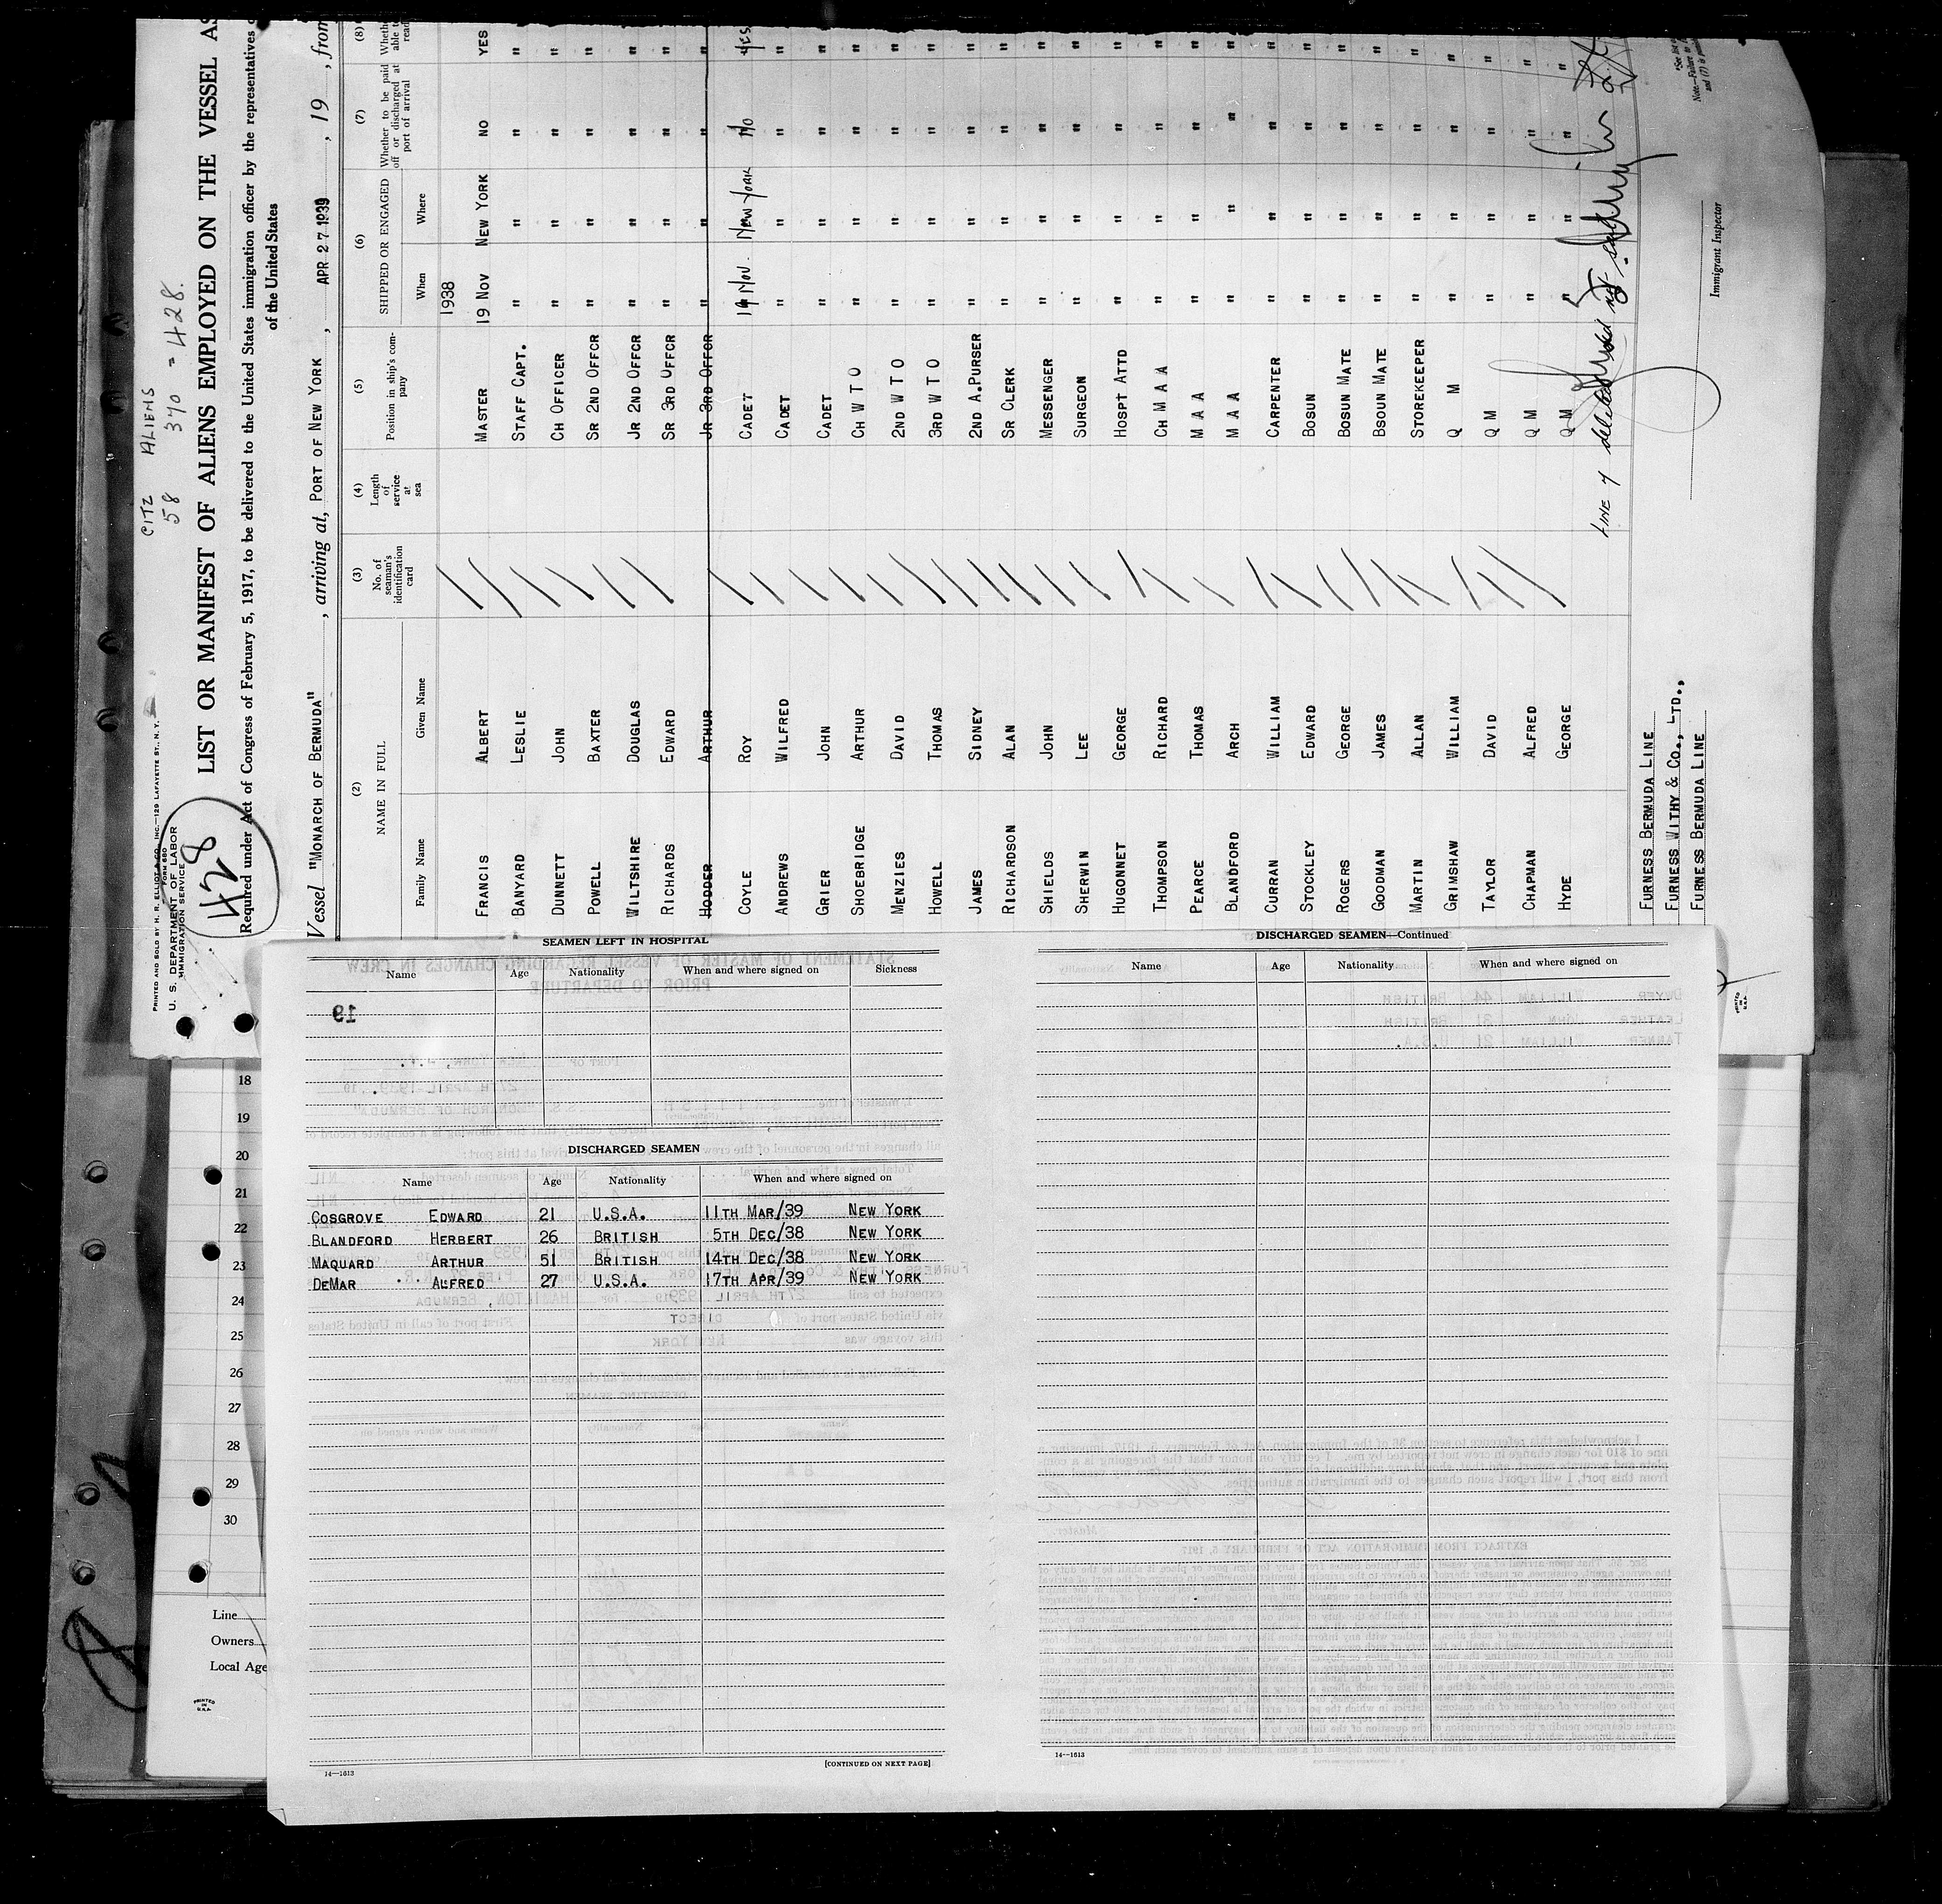 PRINTED AND SOLD BY H. R. ELLIOT & CO., INC.—129 LAFAYETTE ST., N. Y.
FORM 680
U. S. DEPARTMENT OF LABOR
IMMIGRATION SERVICE
428
CITZ ALIENS
58 370 = 428.
LIST OR MANIFEST OF ALIENS EMPLOYED ON THE VESSEL AS
Required under Act of Congress of February 5, 1917, to be delivered to the United States immigration officer by the representatives
of the United States
Vessel "MONARCH OF BERMUDA", arriving at, PORT OF NEW YORK, APR 27 1939, 19, from
(2) (3) (4) (5) (6) (7) (8)
NAME IN FULL No. of seaman's identification card Length of service at sea Position in ship's company SHIPPED OR ENGAGED Whether to be paid off or discharged at port of arrival
Family Name Given Name When Where
1938
FRANCIS ALBERT MASTER 19 NOV NEW YORK NO YES
BANYARD LESLIE STAFF CAPT. " " " "
DUNNETT JOHN CH OFFICER " " " "
POWELL BAXTER SR 2ND OFFCR " " " "
WILTSHIRE DOUGLAS JR 2ND OFFCR " " " "
RICHARDS EDWARD SR 3RD OFFCR " " " "
HODDER ARTHUR JR 3RD OFFCR " " " "
COYLE ROY CADET 19 Nov. New York No Yes
ANDREWS WILFRED CADET " " " "
GRIER JOHN CADET " " " "
SHOEBRIDGE ARTHUR CH W T O " " " "
MENZIES DAVID 2ND W T O " " " "
HOWELL THOMAS 3RD W T O " " " "
JAMES SIDNEY 2ND A.PURSER " " " "
RICHARDSON ALAN SR CLERK " " " "
SHIELDS JOHN MESSENGER " " " "
SHERWIN LEE SURGEON " " " "
HUGONNET GEORGE HOSPT ATTD " " " "
THOMPSON RICHARD CH M A A " " " "
PEARCE THOMAS M A A " " " "
BLANDFORD ARCH M A A " " " "
CURRAN WILLIAM CARPENTER " " " "
STOCKLEY EDWARD BOSUN " " " "
ROGERS GEORGE BOSUN MATE " " " "
GOODMAN JAMES BSOUN MATE " " " "
MARTIN ALLAN STOREKEEPER " " " "
GRIMSHAW WILLIAM Q M " " " "
TAYLOR DAVID Q M " " " "
CHAPMAN ALFRED Q M " " " "
HYDE GEORGE Q M " " " "
LINE 7 deleted
FURNESS BERMUDA LINE
FURNESS WITHY & CO., LTD.,
FURNESS BERMUDA LINE
Immigrant Inspector
SEAMEN LEFT IN HOSPITAL
Name Age Nationality When and where signed on Sickness
DISCHARGED SEAMEN
Name Age Nationality When and where signed on
COSGROVE EDWARD 21 U.S.A. 11TH MAR/39 NEW YORK
BLANDFORD HERBERT 26 BRITISH 5TH DEC/38 NEW YORK
MAQUARD ARTHUR 51 BRITISH 14TH DEC/38 NEW YORK
DEMAR ALFRED 27 U.S.A. 17TH APR/39 NEW YORK
14—1613
[CONTINUED ON NEXT PAGE]
DISCHARGED SEAMEN—Continued
Name Age Nationality When and where signed on
14—1613
18
19
20
21
22
23
24
25
26
27
28
29
30
Line
Owners
Local Age
PRINTED IN U.S.A.